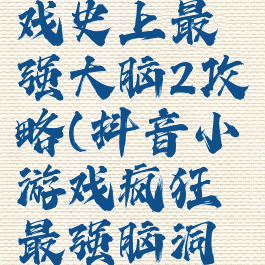 戏史上最
强大脑2攻
略(抖音小
游戏疯狂
最强脑洞